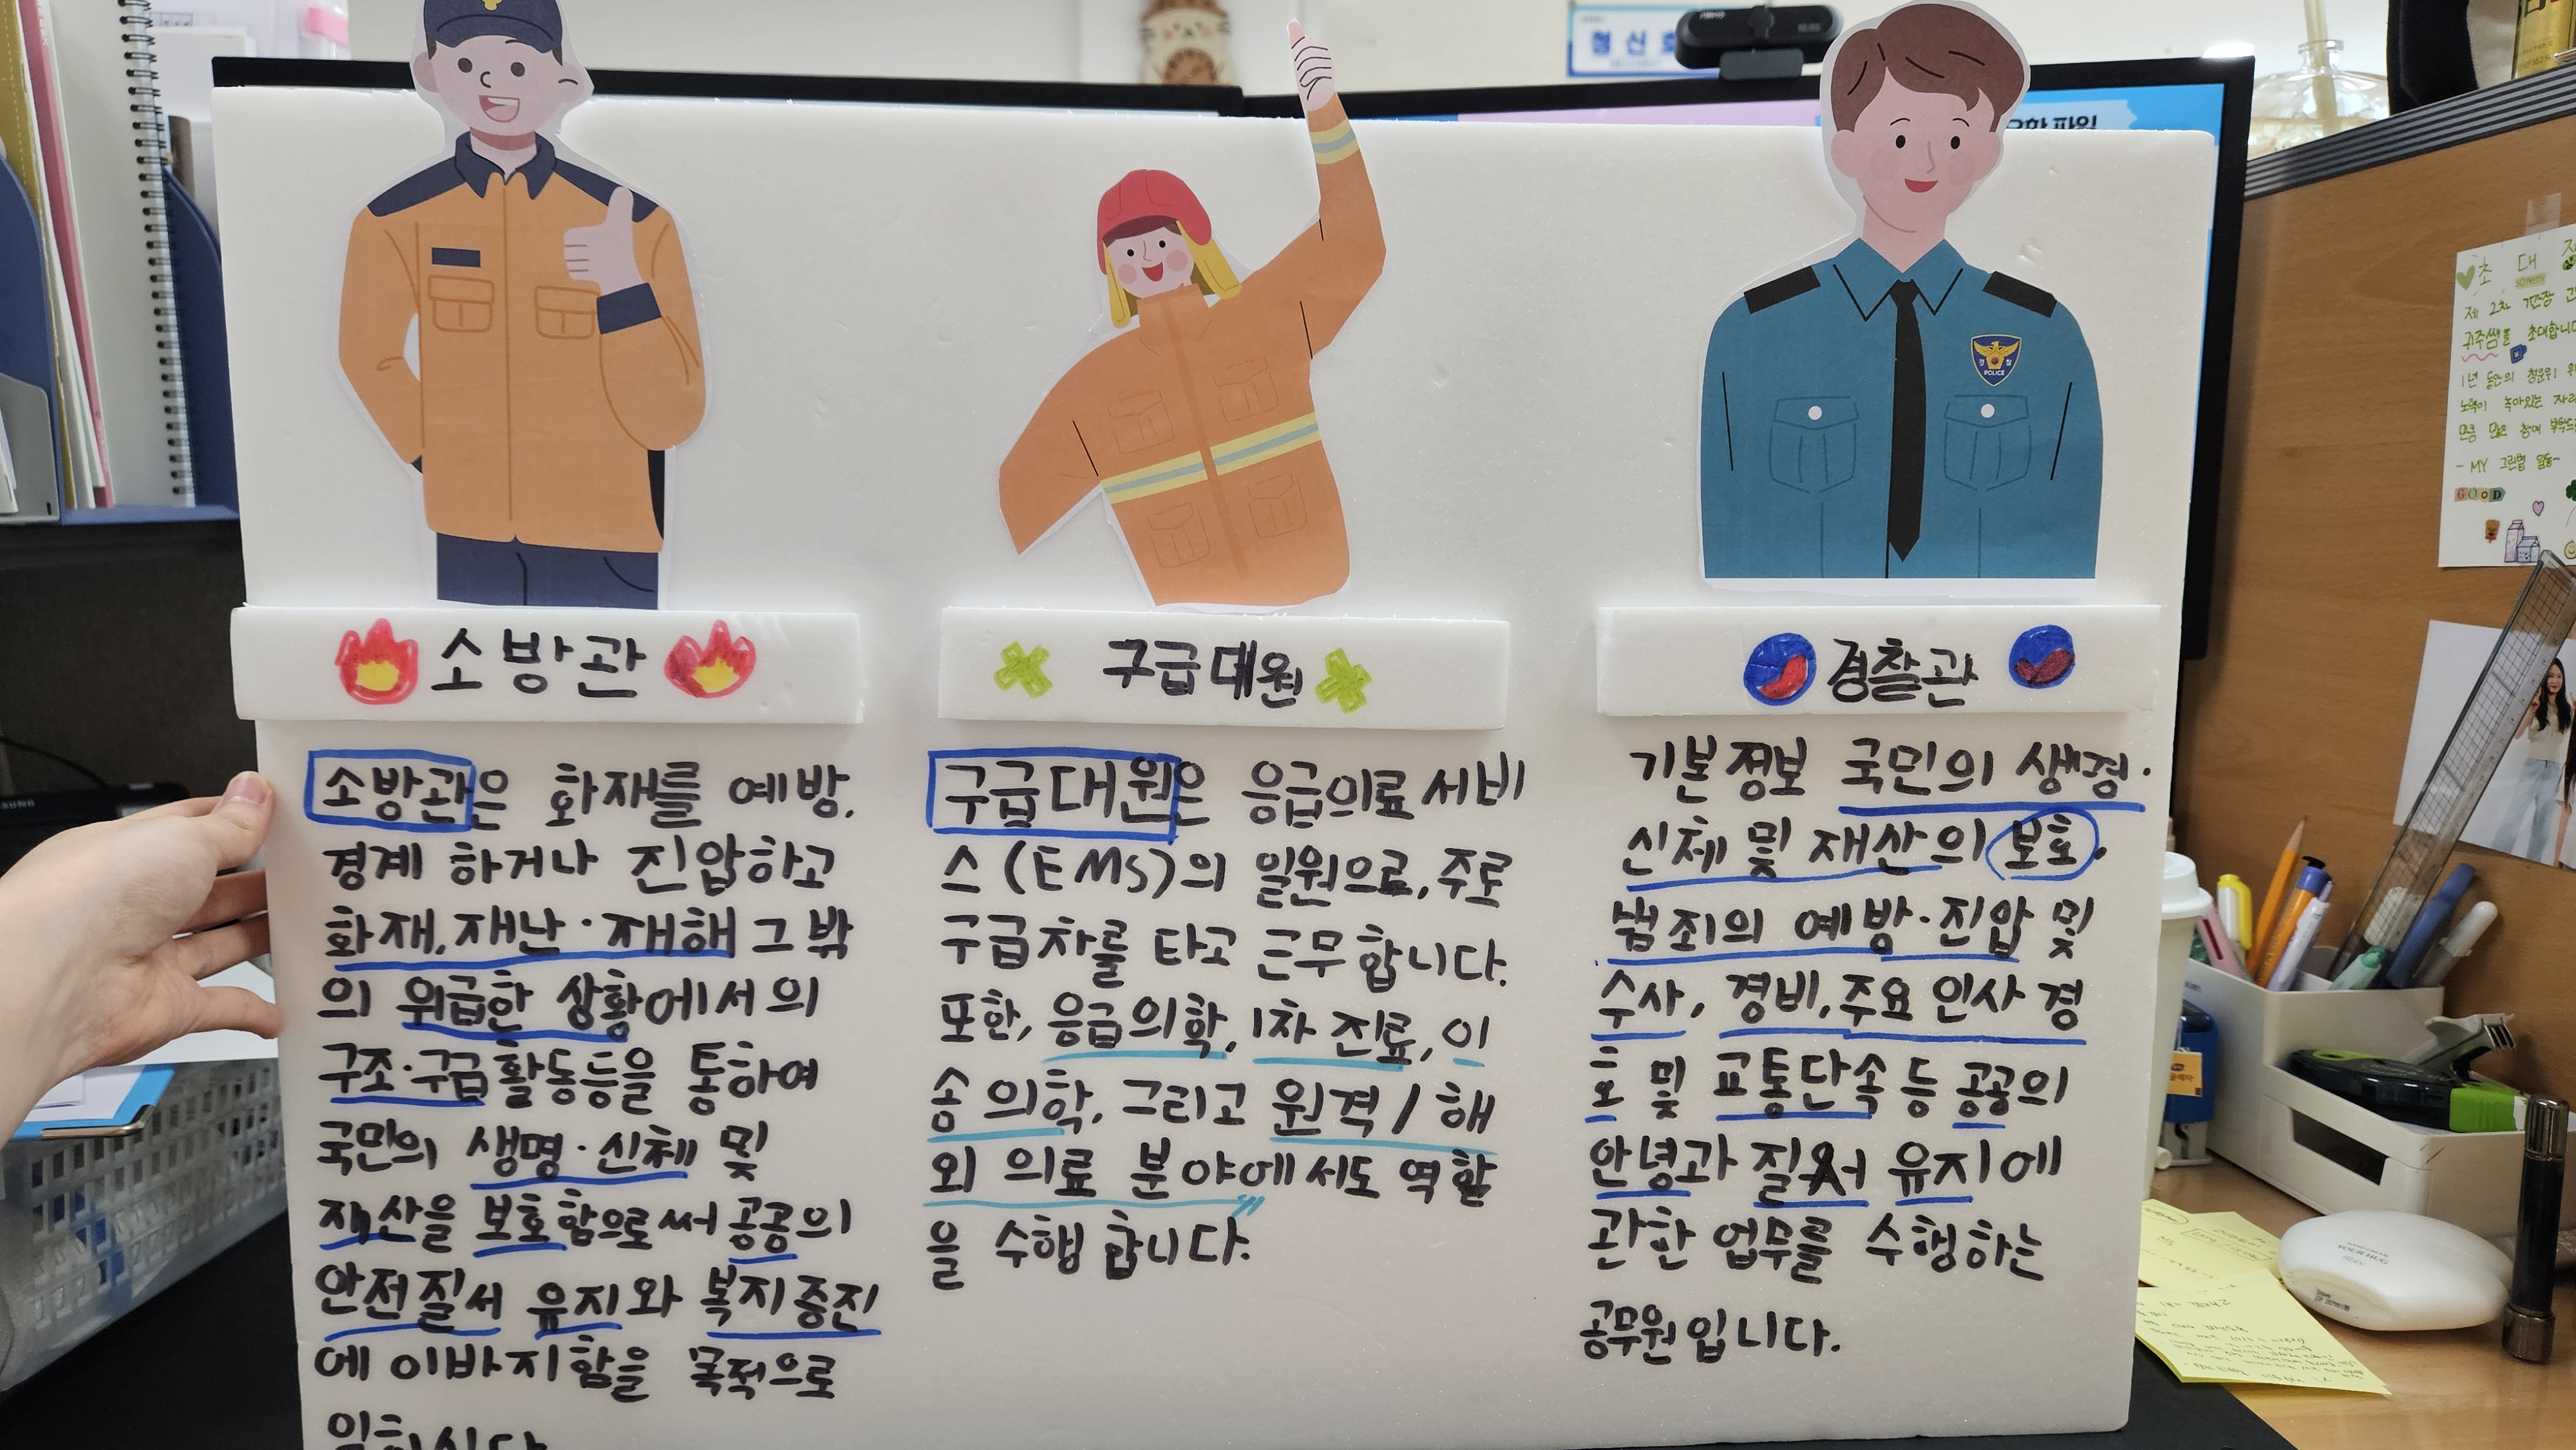 소방관
소방관은 화재를 예방.
경계 하거나 진압하고
화재, 재난·재해 그 밖
의 위급한 상황에서의
구조·구급활동등을 통하여
국민의 생명·신체 및
재산을 보호함으로써 공공의
안전질서 유지와 복지증진
에 이바지함을 목적으로
구급대원
구급대원은 응급의료서비
스(EMS)의 일원으로, 주로
구급차를 타고 근무합니다.
또한, 응급의학, 1차 진료, 이
송 의학, 그리고 원격/해
외 의료 분야에서도 역할
을 수행 합니다.
경찰관
기본정보 국민의 생명·
신체 및 재산의 보호·
범죄의 예방·진압 및
수사, 경비, 주요 인사 경
호 및 교통단속 등 공공의
안녕과 질서 유지에
관한 업무를 수행하는
공무원입니다.
경찰
POLICE
초 대
제 2차
초대합니다
1년 동안의
- MY 그린벨 일동-
GOOD
YOUR HUG